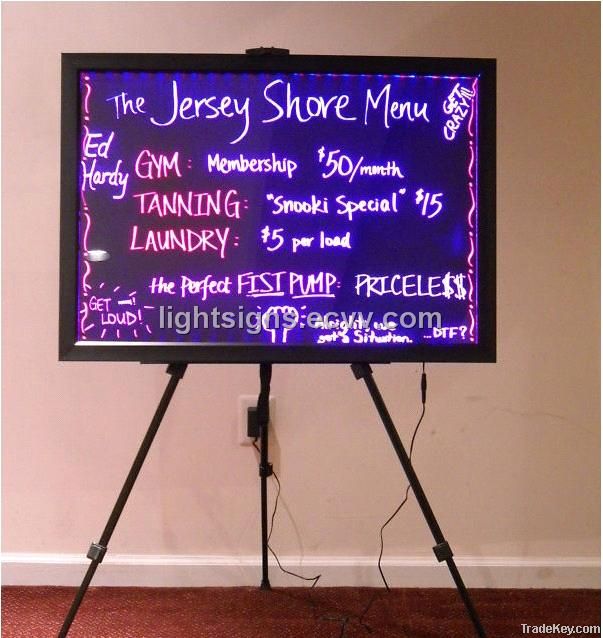 The Jersey Shore Menu
GET CRAZY!!!
Ed
Hardy
GYM: Membership $50/month
TANNING: "Snooki Special" $15
LAUNDRY: $5 per load
the Perfect FIST PUMP: PRICELE$$
GET
LOUD!
lightsigns.ecvv.com
alright, we
got a Situation.
...DTF?
TradeKey.com